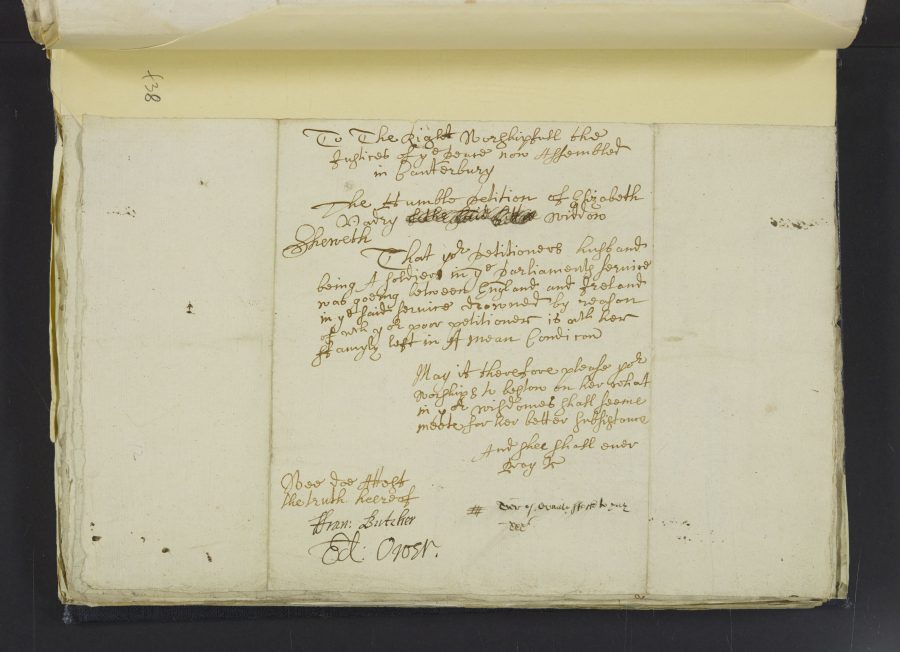 438
To The Right Worshipfull the
Justices of ye peace now Assembled
in Canterbury
The Humble petition of Elizabeth
widdow
Sheweth
That yor petitioners husband
being A soldier in ye parliaments service
was goeing between England and Ireland
in ye said service drowned by reason
of wch yor poor petitioner is wth her
ffamyly left in A mean Condicon
May it therefore please yor
worships to bestow on her what
in yor wisdomes shall seeme
meete for her better subsistance
And shee shall ever
pray &c
Wee doe Attest
the truth heereof
ffran: Butcher
Ed: